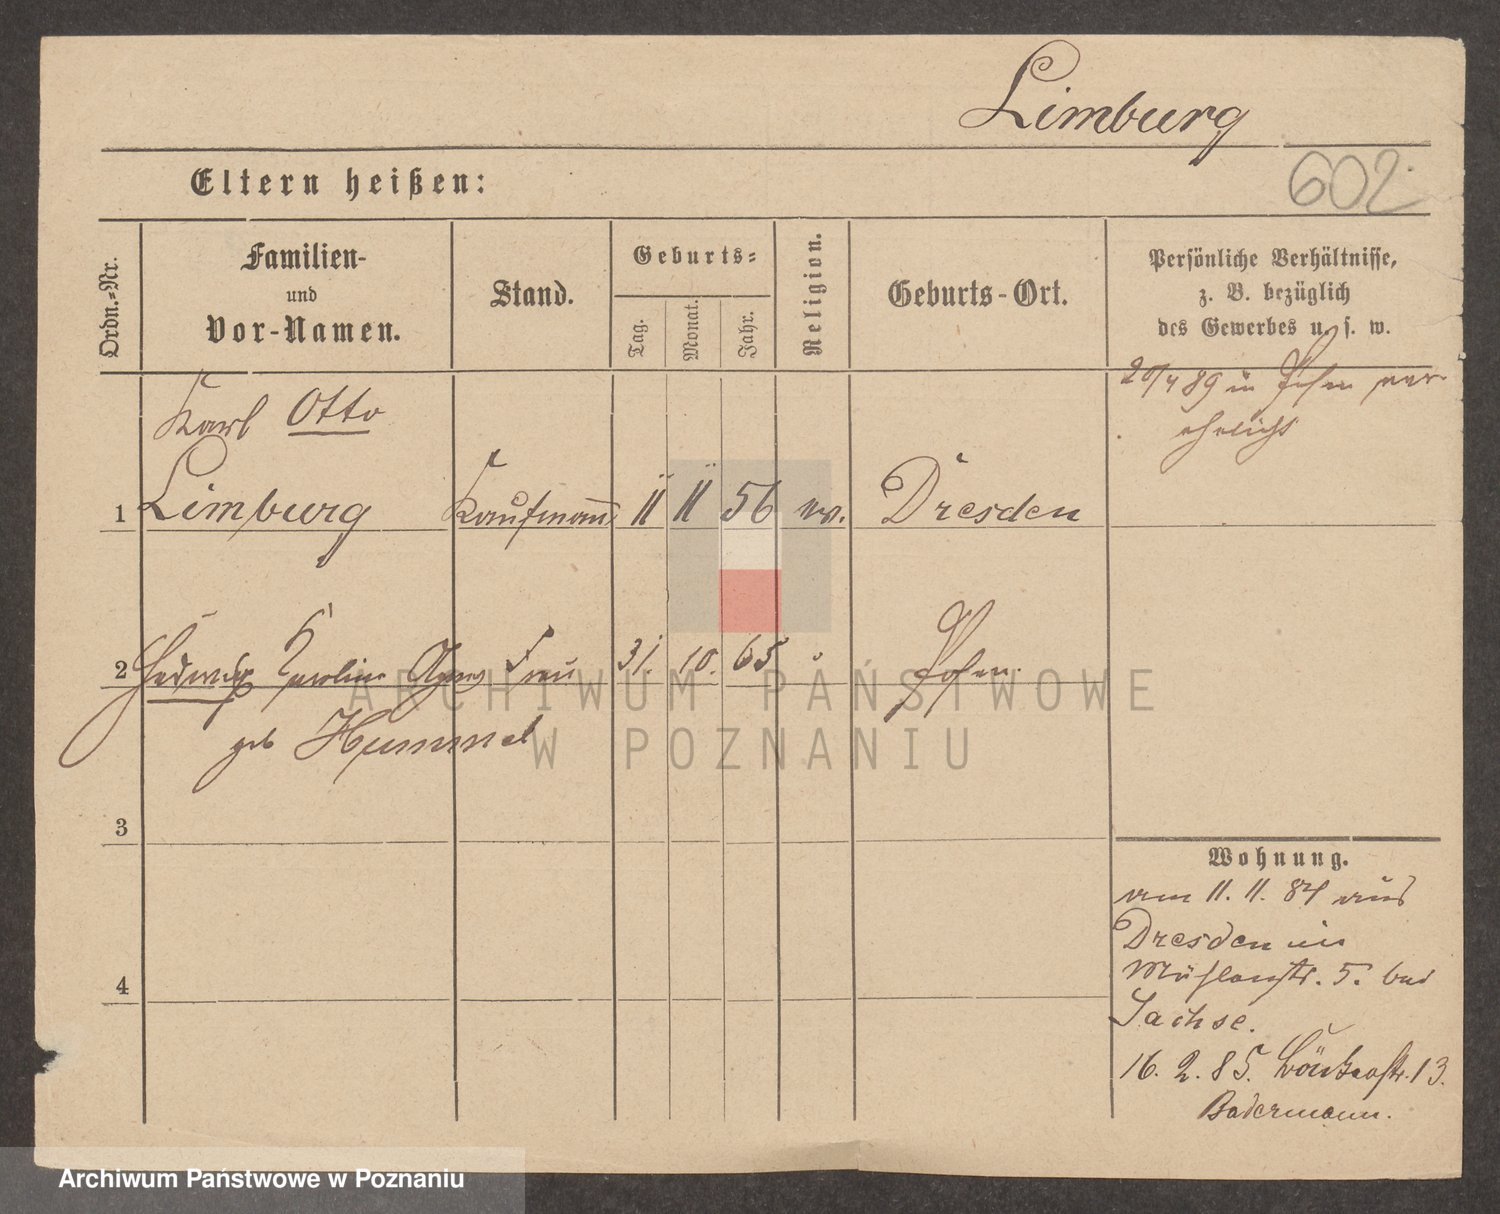 Limburg
602
Eltern heißen:
Ordn.=Nr.
Familien-
und
Vor-Namen.
Stand.
Geburts=
Tag.
Monat.
Jahr.
Religion.
Geburts-Ort.
Persönliche Verhältnisse,
z. B. bezüglich
des Gewerbes u. s. w.
Karl Otto
20/4 89 in Posen ver
ehelicht
1 Limburg Kaufmann 11 11 56 ev. Dresden
2 Hedwig Karoline Agnes Frau 31. 10. 65 Posen.
geb Hummel
3
4
Wohnung.
am 11. 11. 84 aus
Dresden in
Mühlenstr. 5. bei
Sachse.
16. 2. 85. 13.
Badermann.
ARCHIWUM PAŃSTWOWE
W POZNANIU
Archiwum Państwowe w Poznaniu